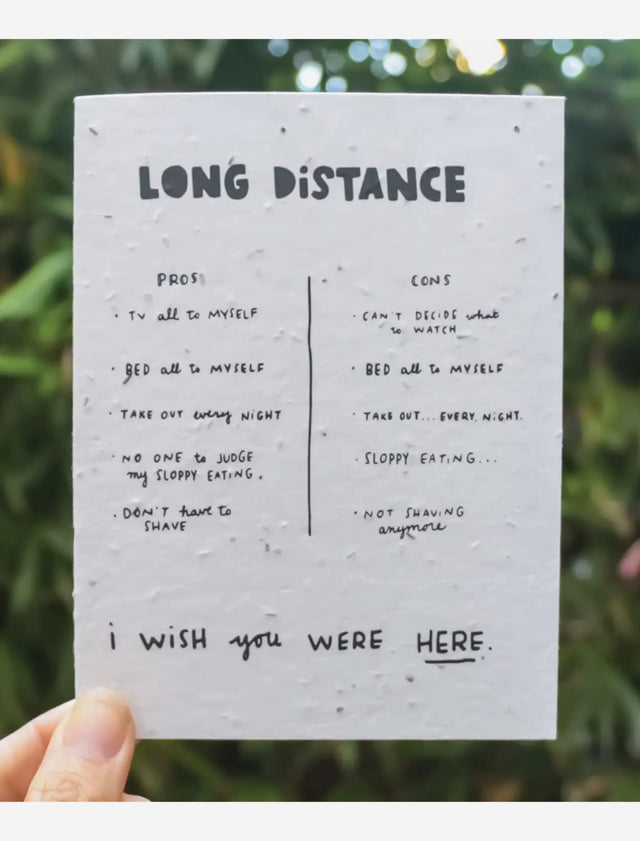 LONG DiSTANCE
PROS
· TV all to MYSELF
· BED all to MYSELF
· TAKE OUT every NIGHT
· NO ONE to JUDGE
my SLOPPY EATING.
· DON'T have to
SHAVE
CONS
· CAN'T DECIDE what
to WATCH
· BED all to MYSELF
· TAKE OUT... EVERY. NiGHT.
· SLOPPY EATING...
· NOT SHAVING
anymore
i WiSH you WERE HERE.